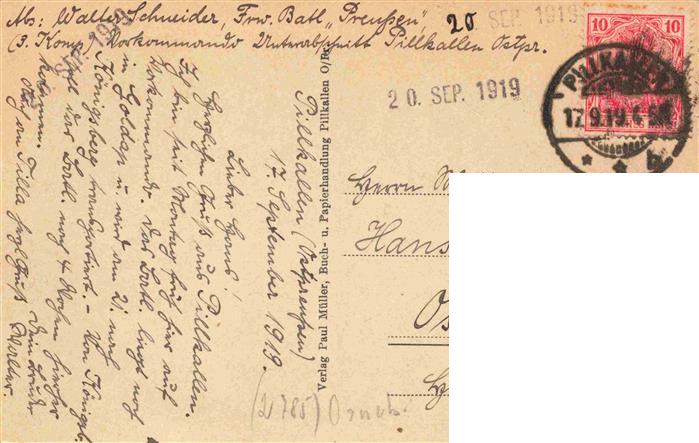 Abs: Walter Schneider, Frw. Batl. „Preußen“,
(3. Komp.) Vorkommando Unterabschnitt Pillkallen Ostpr.
20. SEP. 1919
20. SEP. 1919
10 10
PILLKALLEN
17.9.19. 4-5N
* * b
Pillkallen (Ostpreussen)
17. September 1919.
Lieber Hans!
Herzlichen Gruß aus Pillkallen.
Ich bin seit Montag früh hier auf
Vorkommando. Das Batl. liegt noch
in Goldap u. wird am 21. nach
Königsberg transportiert. – Von Königsb.
soll das Batl. nach 4 Wochen hierher
kommen. Dein Bruder
Walter
Verlag Paul Müller, Buch- u. Papierhandlung Pillkallen O/Pr.
Herrn
Hans
(2785)